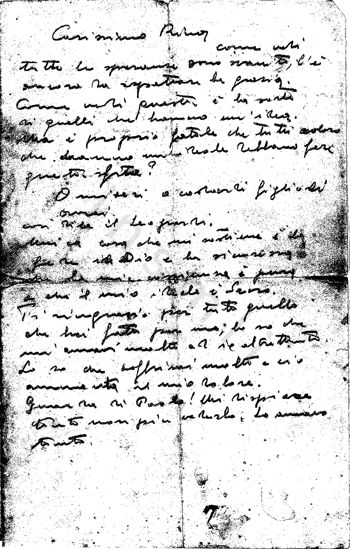 Carissimo
come vedi
tutte le speranze sono svanite, c'è
ancora da aspettare la grazia.
Come vedi questa è la sorte
di quelli che hanno un'idea.
Ma è proprio fatale che tutti coloro
che hanno un ideale debbano fare
questa fine?
O miseri o codardi figli
avrai
così disse il Leopardi.
Unica cosa che mi sostiene è la
fede in Dio e la sicurezza
che la mia coscienza è pura
e che il mio ideale è sacro.
Ti ringrazio per tutto quello
che hai fatto per me; lo so che
mi amavi molto ed io altrettanto
Lo so che soffrirai molto e ciò
aumenta il mio dolore.
Guarda di Paolo! Mi dispiace
tanto non più vederlo, lo amavo
tanto
7